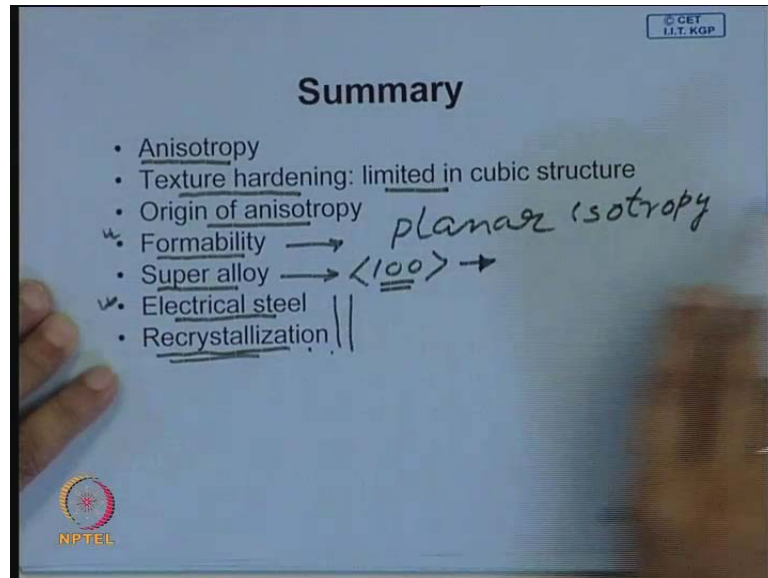 © CET
I.I.T. KGP
Summary
• Anisotropy
• Texture hardening: limited in cubic structure
• Origin of anisotropy
• Formability → planar isotropy
• Super alloy → <100> →
• Electrical steel
• Recrystallization
NPTEL